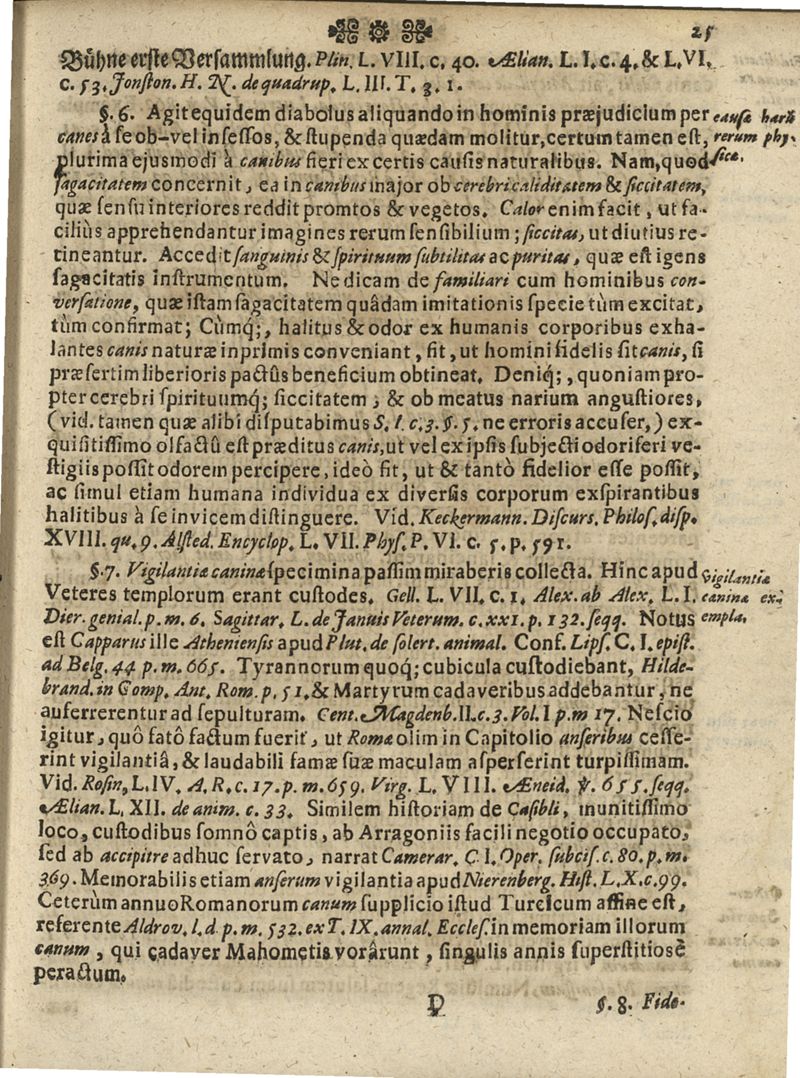 25
Bühne erste Versammlung. Plin. L. VIII. c. 40. Ælian. L. I. c. 4. & L. VI.
c. 53. Jonſton. H. N. de quadrup. L. III. T. 3. 1.
§. 6. Agit equidem diabolus aliquando in hominis præjudicium per
cauſæ haru͂
canes à ſe ob-vel inſeſſos, & ſtupenda quædam molitur, certum tamen eſt,
rerum phy-
plurima ejusmodi à canibus fieri ex certis cauſis naturalibus. Nam, quod
ſicæ.
ſagacitatem concernit, ea in canibus major ob cerebri caliditatem & ſiccitatem,
quæ ſenſu interiores reddit promtos & vegetos. Calor enim facit, ut fa-
ciliùs apprehendantur imagines rerum ſenſibilium; ſiccitas, ut diutius re-
tineantur. Accedit ſanguinis & ſpirituum ſubtilitas ac puritas, quæ eſt igens
ſagacitatis inſtrumentum. Ne dicam de familiari cum hominibus con-
verſatione, quæ iſtam ſagacitatem quâdam imitationis ſpecie tùm excitat,
tùm confirmat; Cùmq;, halitus & odor ex humanis corporibus exha-
lantes canis naturæ inprimis conveniant, fit, ut homini fidelis ſit canis, ſi
præſertim liberioris pactûs beneficium obtineat. Deniq́;, quoniam pro-
pter cerebri ſpirituumq́; ſiccitatem, & ob meatus narium anguſtiores,
(vid. tamen quæ alibi diſputabimus S. I. c. 3. §. 5. ne erroris accuſer,) ex-
quiſitiſſimo olfactû eſt præditus canis, ut vel ex ipſis ſubjecti odoriferi ve-
ſtigiis poſſit odorem percipere, ideò fit, ut & tantò fidelior eſſe poſſit,
ac ſimul etiam humana individua ex diverſis corporum exſpirantibus
halitibus à ſe invicem diſtinguere. Vid. Keckermann. Diſcurs. Philoſ. diſp.
XVIII. qu. 9. Alſted. Encyclop. L. VII. Phyſ. P. VI. c. 5. p. 591.
§. 7. Vigilantiæ caninæ ſpecimina paſſim miraberis collecta. Hinc apud
Vigilantiæ
Veteres templorum erant cuſtodes. Gell. L. VII. c. 1. Alex. ab Alex. L. I.
caninæ ex-
Dier. genial. p. m. 6. Sagittar. L. de Januis Veterum. c. xxi. p. 132. ſeqq. Notus
empla.
eſt Capparus ille Athenienſis apud Plut. de ſolert. animal. Conf. Lipſ. C. I. epiſt.
ad Belg. 44 p. m. 665. Tyrannorum quoq́; cubicula cuſtodiebant, Hilde-
brand. in Comp. Ant. Rom. p. 51. & Martyrum cadaveribus addebantur, ne
auferrerentur ad ſepulturam. Cent. Magdenb. II. c. 3. Vol. I p. m 17. Neſcio
igitur, quô fatô factum fuerit, ut Romæ olim in Capitolio anſeribus ceſſe-
rint vigilantiâ, & laudabili famæ ſuæ maculam aſperſerint turpiſſimam.
Vid. Roſin, L. IV. A. R. c. 17. p. m. 659. Virg. L. VIII. Æneid. ℣. 655. ſeqq.
Ælian. L. XII. de anim. c. 33. Similem hiſtoriam de Caſibli, munitiſſimo
loco, cuſtodibus ſomnô captis, ab Arragoniis facili negotio occupato,
ſed ab accipitre adhuc ſervato, narrat Camerar. C. I. Oper. ſubciſ. c. 80. p. m.
369. Memorabilis etiam anſerum vigilantia apud Nierenberg. Hiſt. L. X. c. 99.
Ceterùm annuo Romanorum canum ſupplicio iſtud Turcicum affine eſt,
referente Aldrov. l. d. p. m. 532. ex T. IX. annal. Eccleſ. in memoriam illorum
canum, qui cadaver Mahometis vorârunt, ſingulis annis ſuperſtitioſè
peractum.
D
§. 8. Fide-